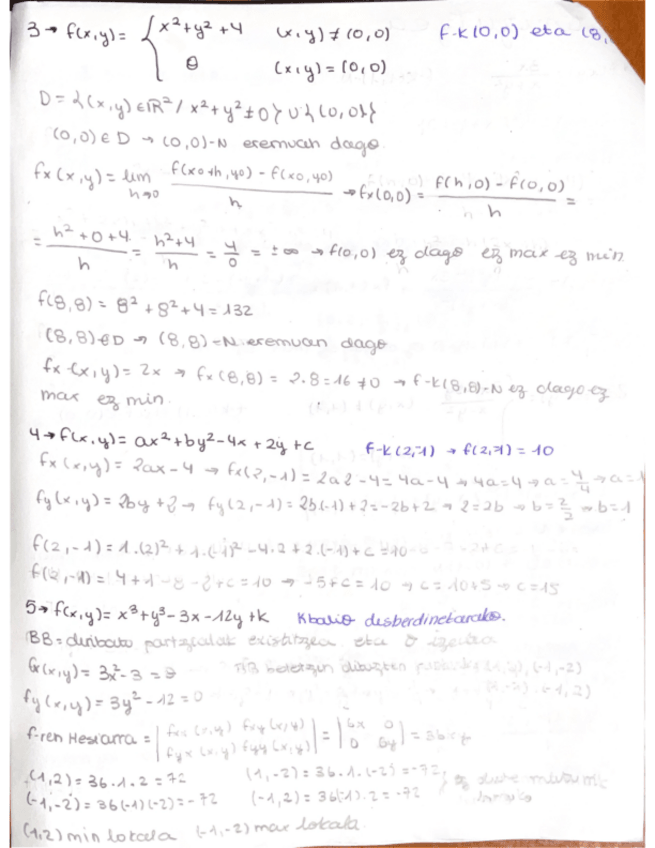 3→ f(x,y) = { x²+y²+4 (x,y) ≠ (0,0) f-k (0,0) eta (8,
0 (x,y) = (0,0)
D = {(x,y) ∈ ℝ² / x²+y² ≠ 0} ∪ {(0,0)}
(0,0) ∈ D → (0,0)-N eremuan dago.
fx (x,y) = lim h→0 f(x0+h,y0) - f(x0,y0) / h → fx(0,0) = f(h,0) - f(0,0) / h =
= h²+0+4 / h = h²+4 / h = 4/0 = ±∞ → f(0,0) ez dago ez max ez min
f(8,8) = 8² + 8² + 4 = 132
(8,8) ∈ D → (8,8)-N eremuan dago
fx (x,y) = 2x → fx (8,8) = 2·8 = 16 ≠ 0 → f-k (8,8)-N ez dago ez
max ez min.
4→ f(x,y) = ax² + by² - 4x + 2y + c f-k (2,-1) → f(2,-1) = 10
fx (x,y) = 2ax - 4 → fx (2,-1) = 2a2 - 4 = 4a - 4 → 4a = 4 → a = 4/4 → a = 1
fy (x,y) = 2by + 2 → fy (2,-1) = 2b(-1) + 2 = -2b + 2 → 2 = 2b → b = 2/2 → b = 1
f(2,-1) = 1·(2)² + 1·(-1)² - 4·2 + 2·(-1) + c = 10
f(2,-1) = 4 + 1 - 8 - 2 + c = 10 → -5 + c = 10 → c = 10+5 → c = 15
5→ f(x,y) = x³ + y³ - 3x - 12y + k K balio desberdinetarako.
BB = deribatu partzialak existitzea eta 0 izatea
fx (x,y) = 3x² - 3 = 0 BB betetzen dituzten puntuak (1,2), (-1,-2)
fy (x,y) = 3y² - 12 = 0 (-1,2)
f-ren Hessiarra = | fxx (x,y) fxy (x,y) | = | 6x 0 | = 36xy
| fyx (x,y) fyy (x,y) | | 0 6y |
(1,2) = 36·1·2 = 72 (1,-2) = 36·1·(-2) = -72
(-1,-2) = 36(-1)(-2) = -72 (-1,2) = 36(-1)·2 = -72
(1,2) min lokala (-1,-2) max lokala.